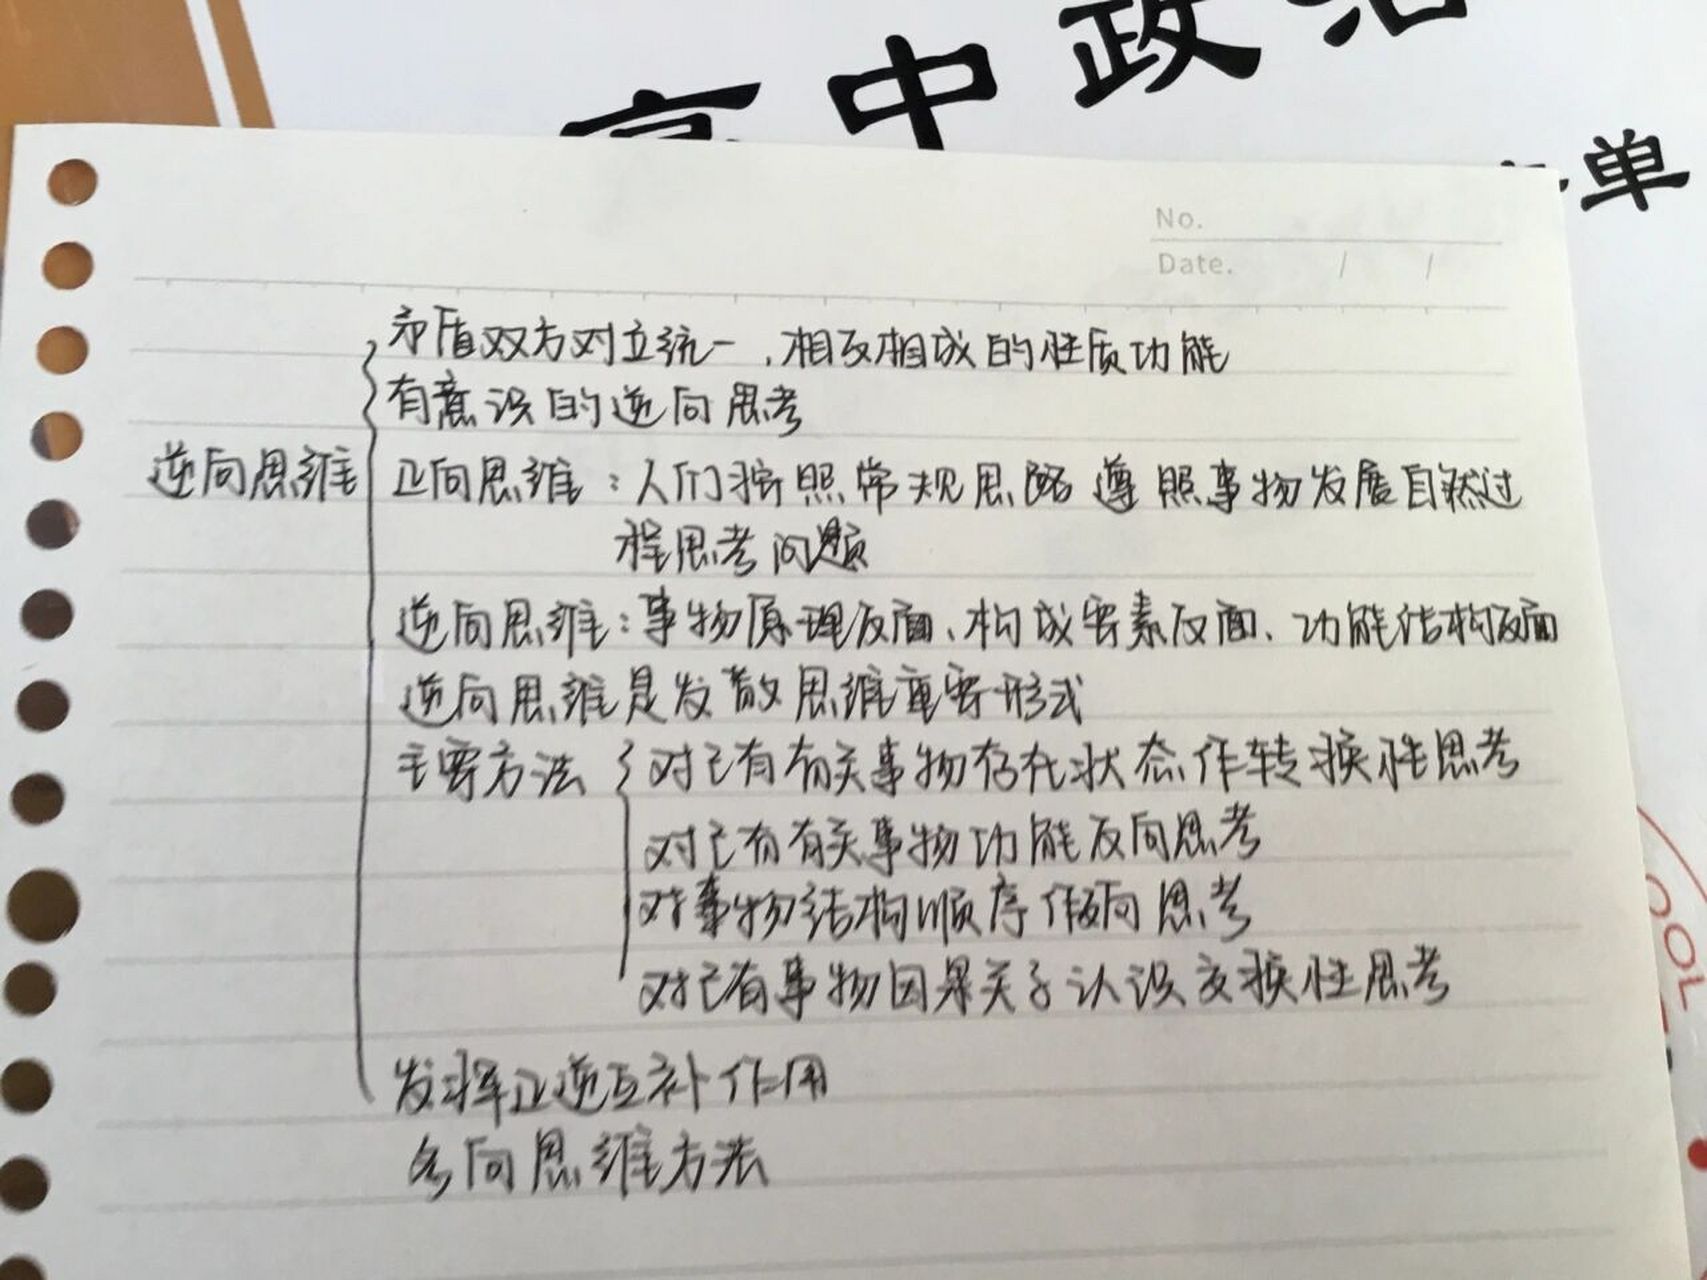 高中政治
单
No.
Date. / /
矛盾双方对立统一,相反相成的性质功能
有意识的逆向思考
逆向思维
正向思维:人们按照常规思路遵照事物发展自然过
程思考问题
逆向思维:事物原理反面、构成要素反面、功能结构反面
逆向思维是发散思维重要形式
主要方法
对已有有关事物存在状态作转换性思考
对已有有关事物功能反向思考
对事物结构顺序作反向思考
对已有事物因果关子认识交换性思考
发挥正逆互补作用
多向思维方法
OOL